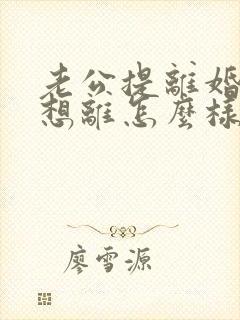 老公提離婚
想離怎麼樣
廖雪源